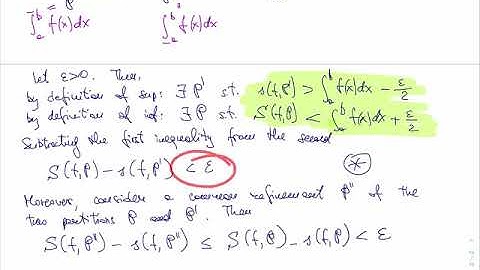 ∫̄_a^b f(x)dx    ∫̲_a^b f(x)dx
Let ε>0. Then,
by definition of sup: ∃ P' s.t. s(f,P') > ∫_a^b f(x)dx − ε/2
by definition of inf: ∃ P s.t. S(f,P) < ∫_a^b f(x)dx + ε/2
Subtracting the first inequality from the second
S(f,P) − s(f,P') < ε    *
Moreover, consider a common refinement P'' of the
two partitions P and P'. Then
S(f,P'') − s(f,P'') ≤ S(f,P) − s(f,P') < ε